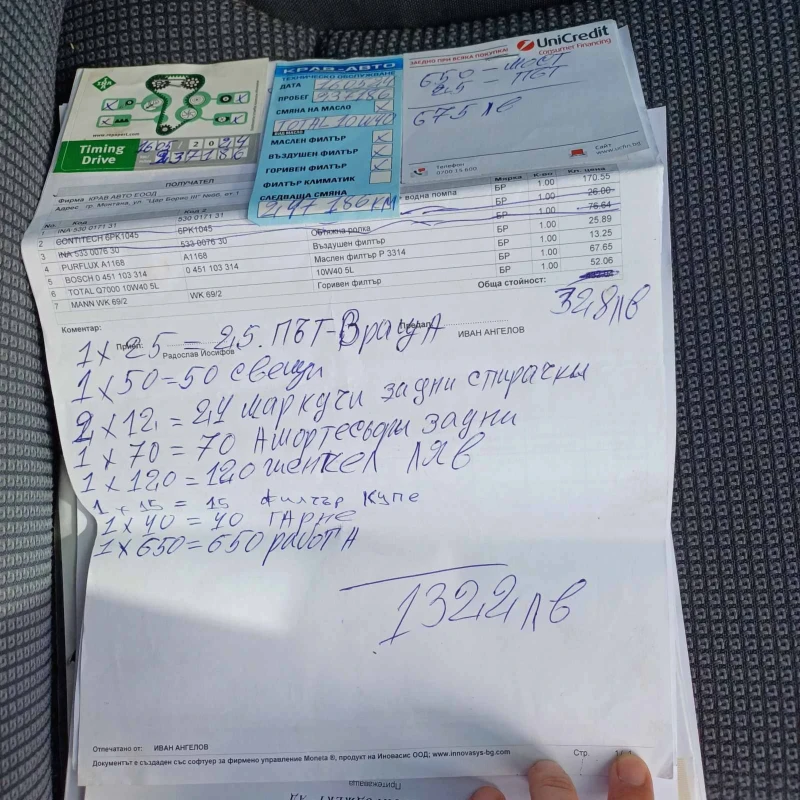 INA
www.repxpert.com
Timing
Drive
16.05 2024
237186
КРАВ-АВТО
ТЕХНИЧЕСКО ОБСЛУЖВАНЕ
ДАТА 16.05.24
ПРОБЕГ 237186
СМЯНА НА МАСЛО
TOTAL 10W40
ВИД МАСЛО
МАСЛЕН ФИЛТЪР
ВЪЗДУШЕН ФИЛТЪР
ГОРИВЕН ФИЛТЪР
ФИЛТЪР КЛИМАТИК
СЛЕДВАЩА СМЯНА
247186 КМ
UniCredit
Consumer Financing
ЗАЕДНО ПРИ ВСЯКА ПОКУПКА!
650 - МОСТ
25 - ПЪТ
675 лв
Телефон
0700 15 600
Сайт
www.ucfin.bg
ПОЛУЧАТЕЛ
Фирма КРАВ АВТО ЕООД
No. Код Код 2 Мярка К-во
INA 530 0171 31 530 0171 31 водна помпа БР 1.00 170.55
2 CONTITECH 6PK1045 6PK1045 БР 1.00 26.00
3 INA 533 0076 30 533 0076 30 Обтяжна ролка БР 1.00 76.64
4 PURFLUX A1168 A1168 Въздушен филтър БР 1.00 25.89
5 BOSCH 0 451 103 314 0 451 103 314 Маслен филтър P 3314 БР 1.00 13.25
6 TOTAL Q7000 10W40 5L 10W40 5L БР 1.00 67.65
7 MANN WK 69/2 WK 69/2 Горивен филтър БР 1.00 52.06
Обща стойност:
328 лв
Коментар:
Приел: Предал:
Радослав Йосифов ИВАН АНГЕЛОВ
1 x 25 = 25. ПЪТ-ВрацА
1 x 50 = 50 свещи
2 x 12 = 24 маркучи задни спирачки
1 x 70 = 70 Амортесьори задни
1 x 120 = 120 шенкел ляв
1 x 15 = 15 филтър купе
1 x 40 = 40 ГАРНЕ
1 x 650 = 650 работА
1322 лв
Отпечатано от: ИВАН АНГЕЛОВ
Документът е създаден със софтуер за фирмено управление Moneta ®, продукт на Иновасис ООД; www.innovasys-bg.com
Стр.
Притежаваща